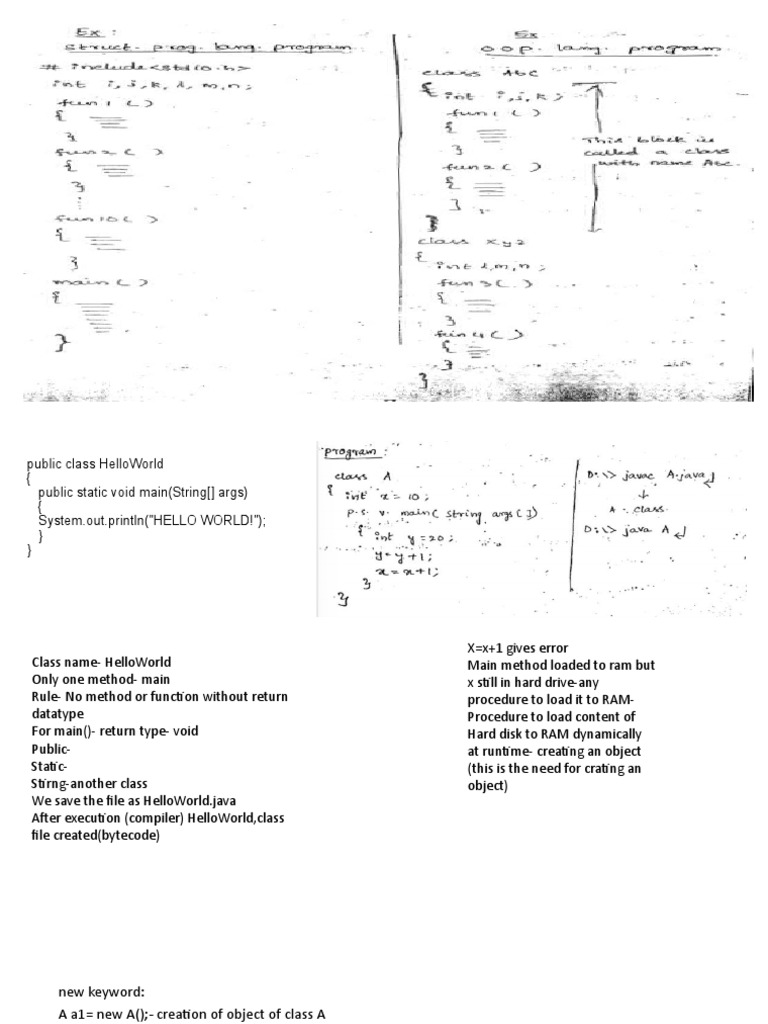 Ex :
Struct. prog. lang. program
# include<stdio.h>
int i, j, k, l, m, n;
fun 1 ( )
{
}
fun 2 ( )
{
}
fun 10 ( )
{
}
main ( )
{
}
Ex
oop. lang. program
class Abc
{ int i, j, k;
fun 1 ( )
{
}
fun 2 ( )
{
}
}
This block is
called a class
with name Abc.
class xyz
{
int l, m, n ;
fun 3 ( )
{
}
fun 4 ( )
{
}
}
public class HelloWorld
{
public static void main(String[] args)
{
System.out.println("HELLO WORLD!");
}
}
program :
class A
{ int x = 10 ;
p. s. v. main( string args[])
{ int y = 20;
y = y+1;
x = x+1;
}
}
D:\> javac A.java
↓
A . class
D:\> java A
Class name- HelloWorld
Only one method- main
Rule- No method or function without return
datatype
For main()- return type- void
Public-
Static-
Stirng-another class
We save the file as HelloWorld.java
After execution (compiler) HelloWorld,class
file created(bytecode)
X=x+1 gives error
Main method loaded to ram but
x still in hard drive-any
procedure to load it to RAM-
Procedure to load content of
Hard disk to RAM dynamically
at runtime- creating an object
(this is the need for crating an
object)
new keyword:
A a1= new A();- creation of object of class A